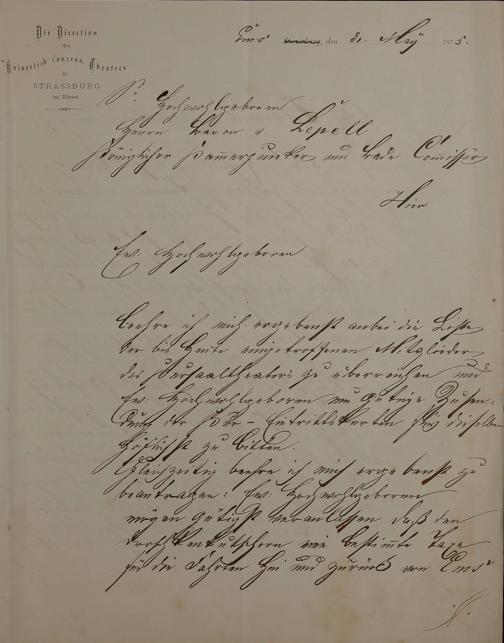 Die Direction
des
Kaiserlich concess. Theaters
in
STRASSBURG
im Elsass.
Ems, den 31. May 1875.
Sr. Hochwohlgeboren
Herrn Baron v. Lepell
Königlicher Kammerjunker und Bade Commissär
Hier
Ew. Hochwohlgeboren
beehre ich mich ergebenst anbei die Liste
der bis heute eingetroffenen Mitglieder
des Cursaaltheaters zu überreichen und
Ew. Hochwohlgeboren um gütige Zusen-
dung der Cur-Eintrittskarten für dieselben
höflichst zu bitten.
Gleichzeitig beehre ich mich ergebenst zu
beantragen: Ew. Hochwohlgeboren
mögen gütigst veranlassen daß den
Droschkenkutschern eine bestimmte Taxe
für die Fahrten hin und zurück von Ems